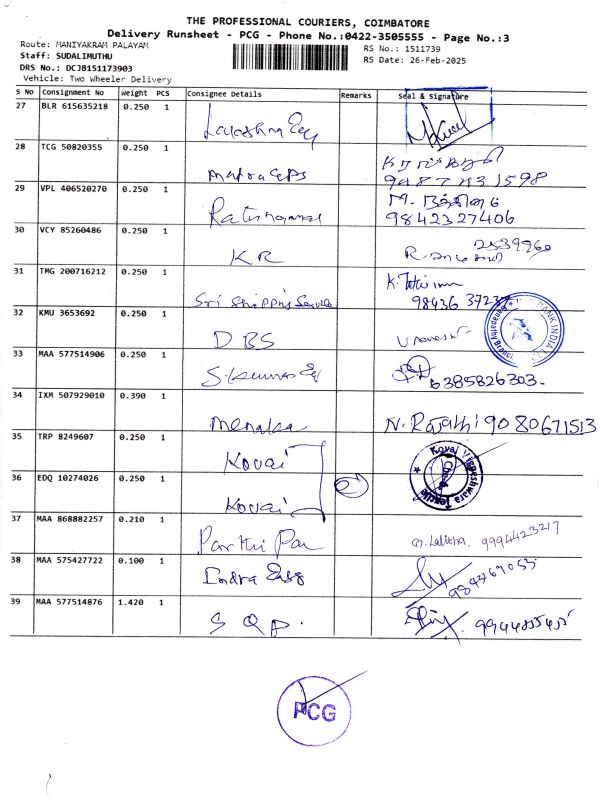 THE PROFESSIONAL COURIERS, COIMBATORE
Delivery Runsheet - PCG - Phone No.:0422-3505555 - Page No.:3
Route: MANIYAKRAM PALAYAM
RS No.: 1511739
Staff: SUDALIMUTHU
RS Date: 26-Feb-2025
DRS No.: DCJB151173903
Vehicle: Two Wheeler Delivery
S No Consignment No Weight PCS Consignee Details Remarks Seal & signature
27 BLR 615635218 0.250 1
28 TCG 50820355 0.250 1
9487431598
29 VPL 406520270 0.250 1
9842327406
30 VCY 85260486 0.250 1 KR
31 TMG 200716212 0.250 1 Sri Shipping
32 KMU 3653692 0.250 1 DBS
33 MAA 577514906 0.250 1 6385826303
34 IXM 507929010 0.390 1 Menaka N. Rajathi 9080671513
35 TRP 8249607 0.250 1 Kovai
36 EDQ 10274026 0.250 1 Kovai
37 MAA 868882257 0.210 1 Parthi M. Lalitha, 9994423217
38 MAA 575427722 0.100 1 Indra
39 MAA 577514876 1.420 1
PCG